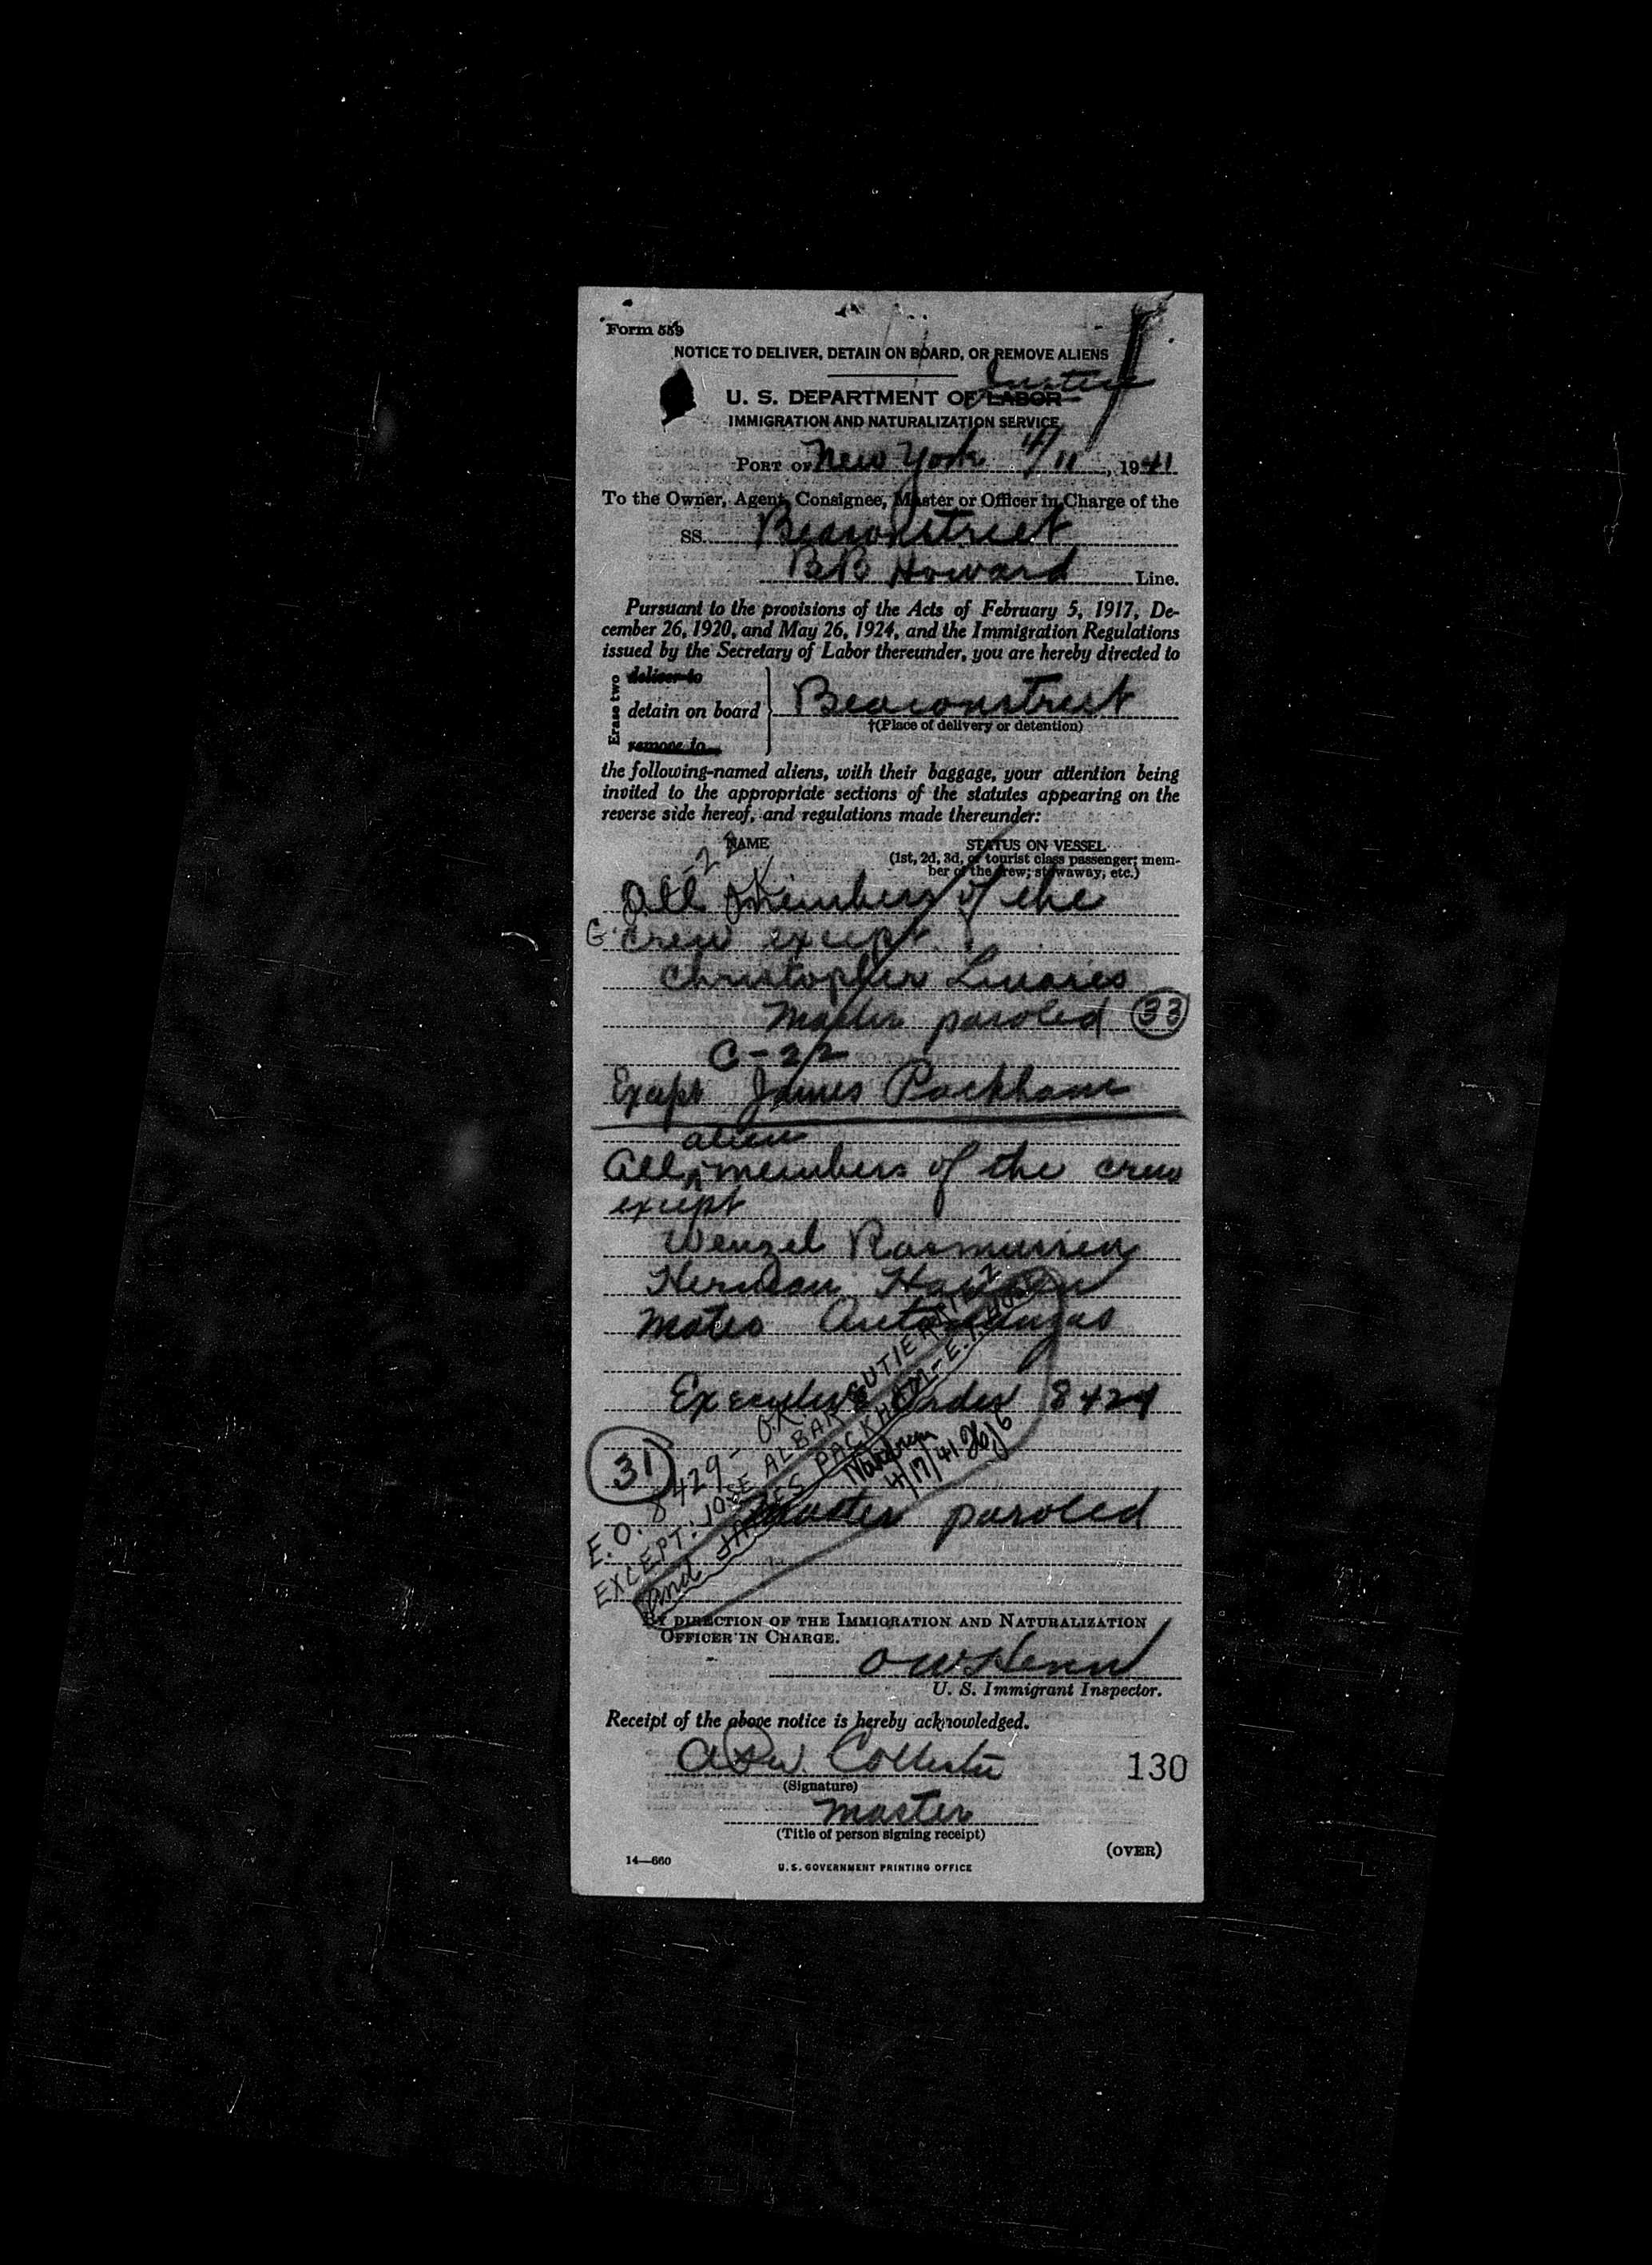 Form 559
NOTICE TO DELIVER, DETAIN ON BOARD, OR REMOVE ALIENS
Justice
U. S. DEPARTMENT OF LABOR
IMMIGRATION AND NATURALIZATION SERVICE
PORT OF New York 4/11, 1941
To the Owner, Agent, Consignee, Master or Officer in Charge of the
SS. Beaconstreet
BB Howard Line.
Pursuant to the provisions of the Acts of February 5, 1917, De-
cember 26, 1920, and May 26, 1924, and the Immigration Regulations
issued by the Secretary of Labor thereunder, you are hereby directed to
Erase two
deliver to
detain on board Beaconstreet
†(Place of delivery or detention)
remove to
the following-named aliens, with their baggage, your attention being
invited to the appropriate sections of the statutes appearing on the
reverse side hereof, and regulations made thereunder:
NAME STATUS ON VESSEL
(1st, 2d, 3d, or tourist class passenger; mem-
ber of the crew; stowaway, etc.)
All members of the
crew except
Christopher Linares
Master paroled 33
C-22
Except James Packham
alien
All members of the crew
except
Wenzel Rasmussen
Herman Hansen
Mateo
Executive Order 8429
31
E.O. 8429- O.K.
EXCEPT: JOSE ALBAR GUTIERREZ
and JAMES PACKHAM - E.
4/17/41
Master paroled
BY DIRECTION OF THE IMMIGRATION AND NATURALIZATION
OFFICER IN CHARGE.
OW Henn
U. S. Immigrant Inspector.
Receipt of the above notice is hereby acknowledged.
Collester
130
(Signature)
Master
(Title of person signing receipt)
(OVER)
14—660
U. S. GOVERNMENT PRINTING OFFICE